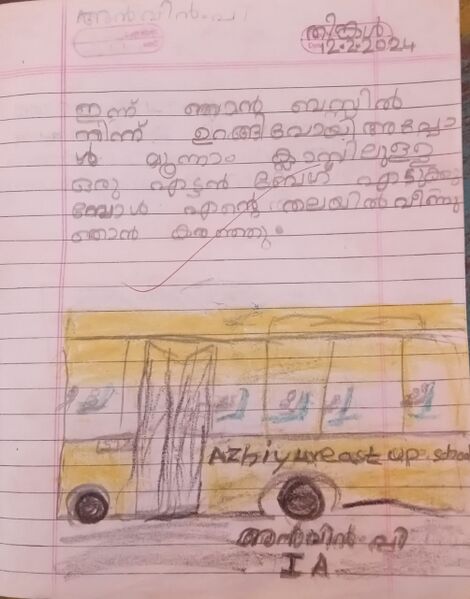 അൻവിൻ.പി
തിങ്കൾ
Date 12.2.2024
ഇന്ന് ഞാൻ ബസ്സിൽ
നിന്ന് ഉറങ്ങിപോയി അപ്പോ
ൾ മൂന്നാം ക്ലാസ്സിലുള്ള
ഒരു ഏട്ടൻ ബേഗ് എടുക്കു
മ്പോൾ എന്റെ തലയിൽ വീണു
ഞാൻ കരഞ്ഞു.
Azhiyureast up school
അൻവിൻ.പി
I A